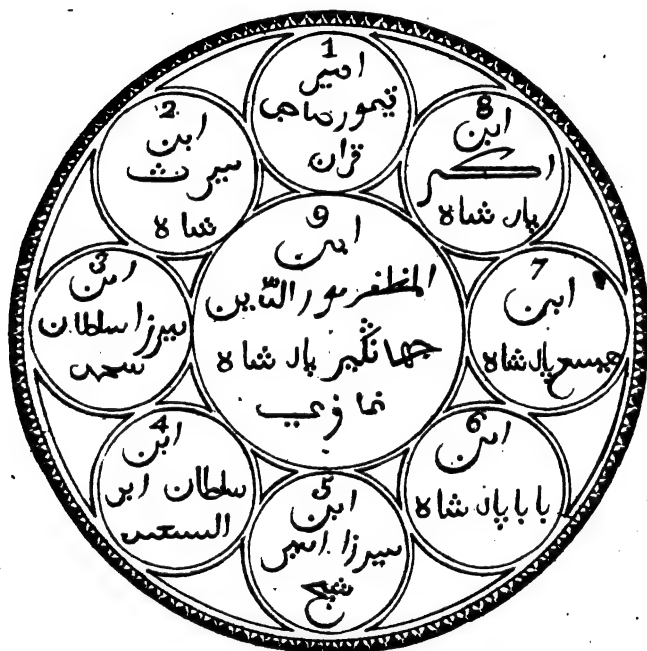 1
امير
تيمور صاحب
قران
2
ابن
ميرث
شاه
3
ابن
ميرزا سلطان
محمد
4
ابن
سلطان ابو
السعيد
5
ابن
ميرزا امير
شيخ
6
ابن
بابا پادشاه
7
ابن
پادشاه
8
ابن
اكبر
پادشاه
9
ابن
المظفر نور الدين
جهانگير پادشاه